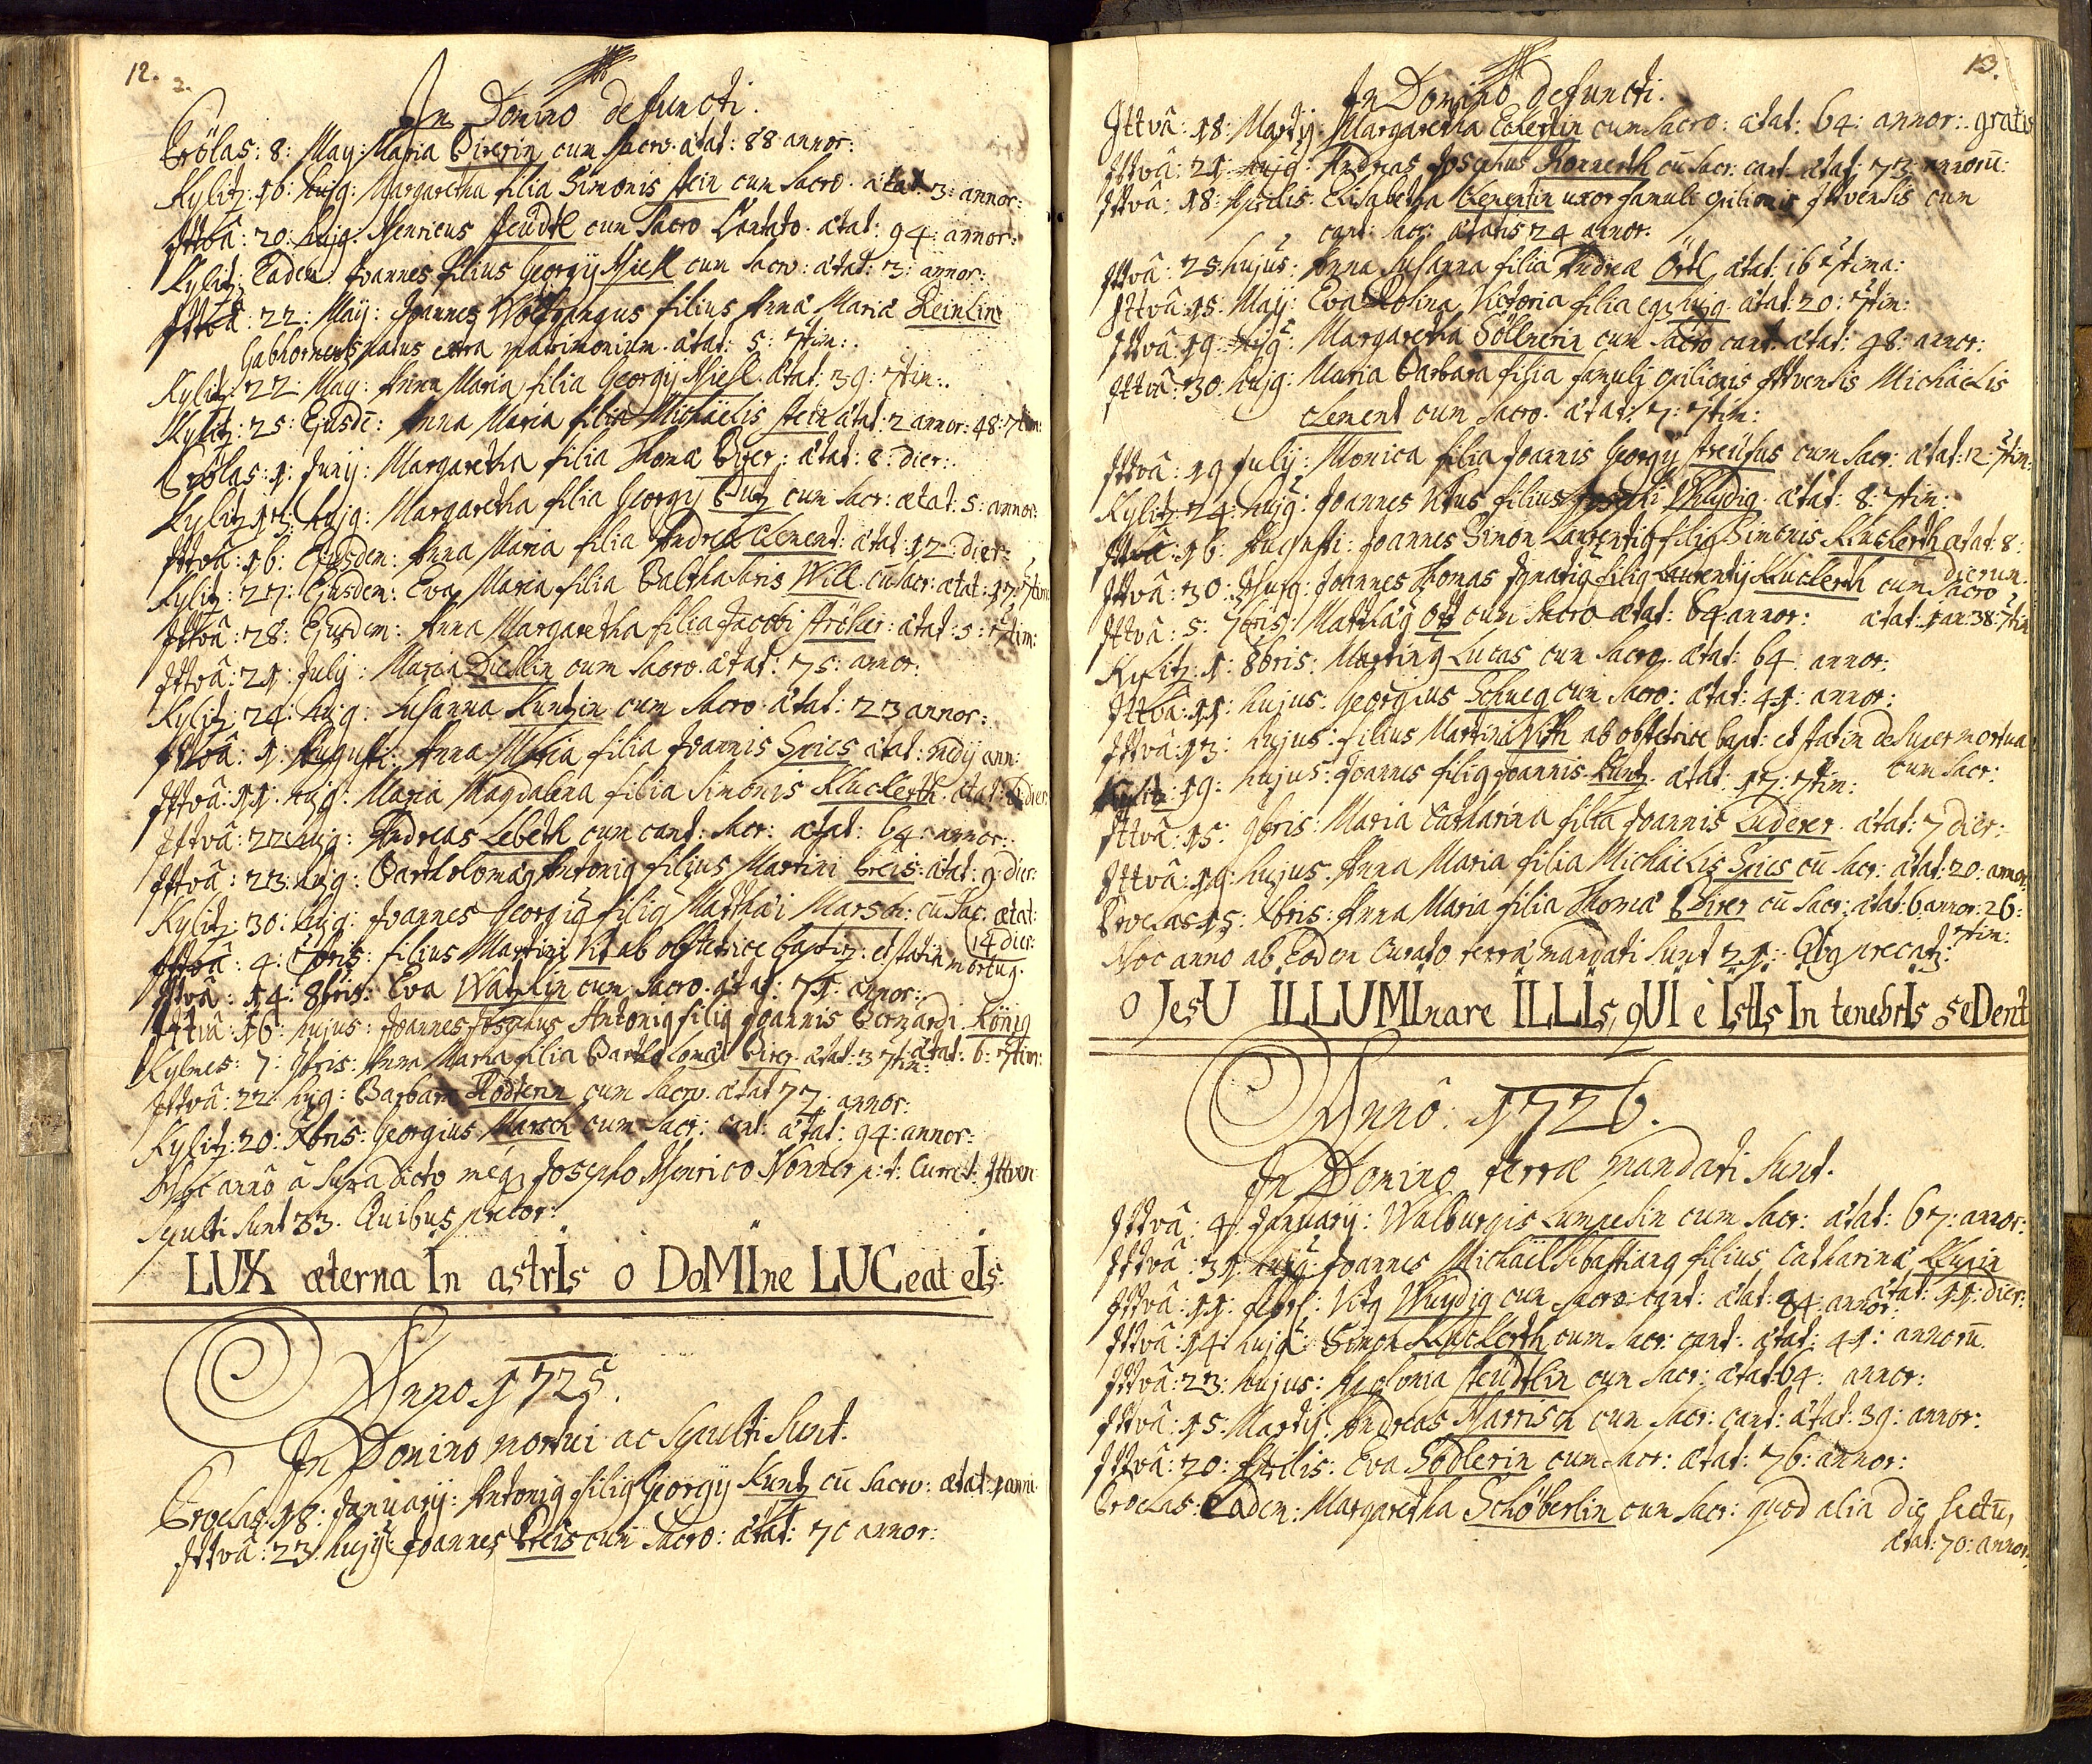 12.
2.
In Domino defuncti.
Crölas: 8: May: Maria Pirerin cum Sacro. ætat: 88 annor:
Kylitz: 16: hujg: Margaretha filia Simonis Stein cum Sacro. ætat: 3: annor:
Ittvâ: 20: hujg: Henricus Steidtl cum Sacro Cantato. ætat: 94: annor:
Kylitz: Eadem Joannes filius Georgij Hiesl cum Sacro: ætat: 3: annor:
Ittvâ: 22: Maij: Joannes Wolfgangus filius Annæ Mariæ Reinlin
natus extra matrimonium. ætat: 5: 7tim:
Kylitz: 22: May: Anna Maria filia Georgij Hiesl. ætat: 39: 7tim:
Kylitz: 25: Ejusdē: Anna Maria filia Michaelis Stein ætat: 2 annor: 48: 7tim:
Crölas: 1: Junij: Margaretha filia Thomæ Pirer: ætat: 8: dier:
Kylitz 13: hujg: Margaretha filia Georgij Putz cum Sacr: ætat: 5: annor:
Ittvâ: 16: Ejusdem: Anna Maria filia Andreæ Clement: ætat: 12: dier:
Kylitz: 27: Ejusdem: Eva Maria filia Balthasaris Will cū Sacr: ætat: 17: 7tim:
Ittvâ: 28: Ejusdem: Anna Margaretha filia Jacobi Ströher: ætat: 5: 7tim:
Ittvâ: 21: July: Maria Dieslin cum Sacro. ætat: 75: annor:
Kylitz: 24: hujg: Susanna Kuntzin cum Sacro ætat: 23 annor:
Ittvâ: 1: Augusti: Anna Maria filia Joannis Spies ætat: medij ann:
Ittvâ: 11: hujg: Maria Magdalena filia Simonis Kluckerth. ætat: dier:
Ittvâ: 22 hujg: Andreas Lebeth cum cant: Sacr: ætat: 64: annor:
Ittvâ: 23: hujg: Bartholomæg Antonig filius Martini Preis: ætat: 9: dier:
Kylitz: 30: hujg: Joannes Georgig filig Matthæi Marsch: cū Sac: ætat:
14 dier:
Ittvâ: 4: 7bris: filius Martini Vit ab obstetrice baptiz: et statim mortug.
Ittvâ: 14: 8bris: Eva Watzlin cum Sacro. ætat: 71: annor:
Ittvâ: 16: hujus: Joannes Josephus Antonig filig Joannis Bernardi König
ætat: 6: 7tim:
Kylmes: 7: 9bris: Anna Maria filia Bartholomæi Pirer ætat: 3 7tim:
Ittvâ: 22: hujg: Barbara Rödterin cum Sacro. ætat 77: annor:
Kylitz: 20: Xbris: Georgius Marsch cum Sacr: cant: ætat: 94: annor:
Hoc annô â Supradicto me Josepho Henrico Nonner p: t: Curat: Ittven
Sepulti Sunt 33. Quibus precor:
LUX æterna In astrIs o DoMIne LUCeat eIs.
Anno 1725.
In Domino mortui ac Sepulti Sunt.
Crocelas: 18: January: Antonig filig Georgij Kuntz cū Sacro: ætat: 1 anni.
Ittvâ: 23: hujg: Joannes Preis cum Sacro: ætat: 70 annor:
13.
In Domino defuncti.
Ittvâ: 18: Martij: Margaretha Eckertin cum Sacro: ætat: 64: annor: gratis
Ittvâ: 21: hujg: Andreas Josephus Konnerth cū Sacr: cant: ætat: 73: annorū:
Ittvâ: 18: Aprilis: Elisabetha Clementin uxor famuli opilionis Ittvensis cum
cant: Sacr: ætatis 24 annor:
Ittvâ: 25: hujus: Anna Susanna filia Andreæ Örtl, ætat: 16 7tima:
Ittvâ: 15: Maij: Eva Rosina Victoria filia ætat: 20: 7tim:
Ittvâ: 19: hujg: Margaretha Söllnerin cum Sacro cant: ætat: 48: annor:
Ittvâ: 30: hujg: Maria Barbara filia famulj opilionis Ittvensis Michäelis
Clement cum Sacro. ætat: 7: 7tim:
Ittvâ: 19 July: Monica filia Joannis Georgij Streitfus cum Sacr: ætat: 12 7tim:
Kylitz: 24: hujg: Joannes Vitus filius Josephi Wuydig. ætat: 8: 7tim:
Ittvâ: 16: Augusti: Joannes Simon Laurentig filig Simonis Kluckerth ætat: 8:
dierum.
Ittvâ: 30: Aug: Joannes Thomas Ignatig filig Laurentij Kluckerth cum Sacro
ætat: 1 an: 38: 7tim
Ittvâ: 5: 7bris: Matthæg Ott cum Sacro ætat: 64 annor:
Kylitz: 1: 8bris: Marting Lucas cum Sacro. ætat: 64: annor:
Ittvâ: 11: hujus: Georgius Schueg cum Sacro: ætat: 41: annor:
Ittvâ: 13: hujus: filius Martini Vith ab obstetrice bapt: et statim desuper mortug
cum Sacr:
Kylitz: 19: hujus: Joannes filig Joannis Kuntz. ætat: 17: 7tim:
Ittvâ: 15: 9bris: Maria Catharina filia Joannis Luderer. ætat: 7 dier:
Ittvâ: 19: hujus: Anna Maria filia Michäelis Spies cū Sacr: ætat: 20: annor
Crocelas: 15: Xbris: Anna Maria filia Thomæ Pirer cū Sacr: ætat: 6 annor: 26:
7tim:
Hoc anno ab Eodem Curato terræ mandati Sunt 21: Qibg precatz:
O JesU ILLUMInare ILLIs, qUI è IstIs In tenebrIs seDent
Annô: 1726.
In Domino terræ mandati Sunt.
Ittvâ: 4: January: Walburgis Lumpesin cum Sacr: ætat: 67: annor:
Ittvâ: 31: hujg: Joannes Michael Sebastiang filius Catharinæ
ætat: 11: dier:
Ittvâ: 11: febr: Vitg Wuydig cum Sacro cant: ætat: 84: annor:
Ittvâ: 14: hujg: Simon Kluckerth cum Sacr: cant: ætat: 41: annorū.
Ittvâ: 23: hujus: Apolonia Steidtlin cum Sacr: ætat: 64: annor:
Ittvâ: 15: Martij: Andreas Marrisch cum Sacr: cant: ætat: 39: annor:
Ittvâ: 20: Aprilis: Eva Södlerin cum Sacr: ætat: 76: annor:
Crocelas: Eadem: Margaretha Schöberlin cum Sacr: quod alia die
ætat: 70: annor: